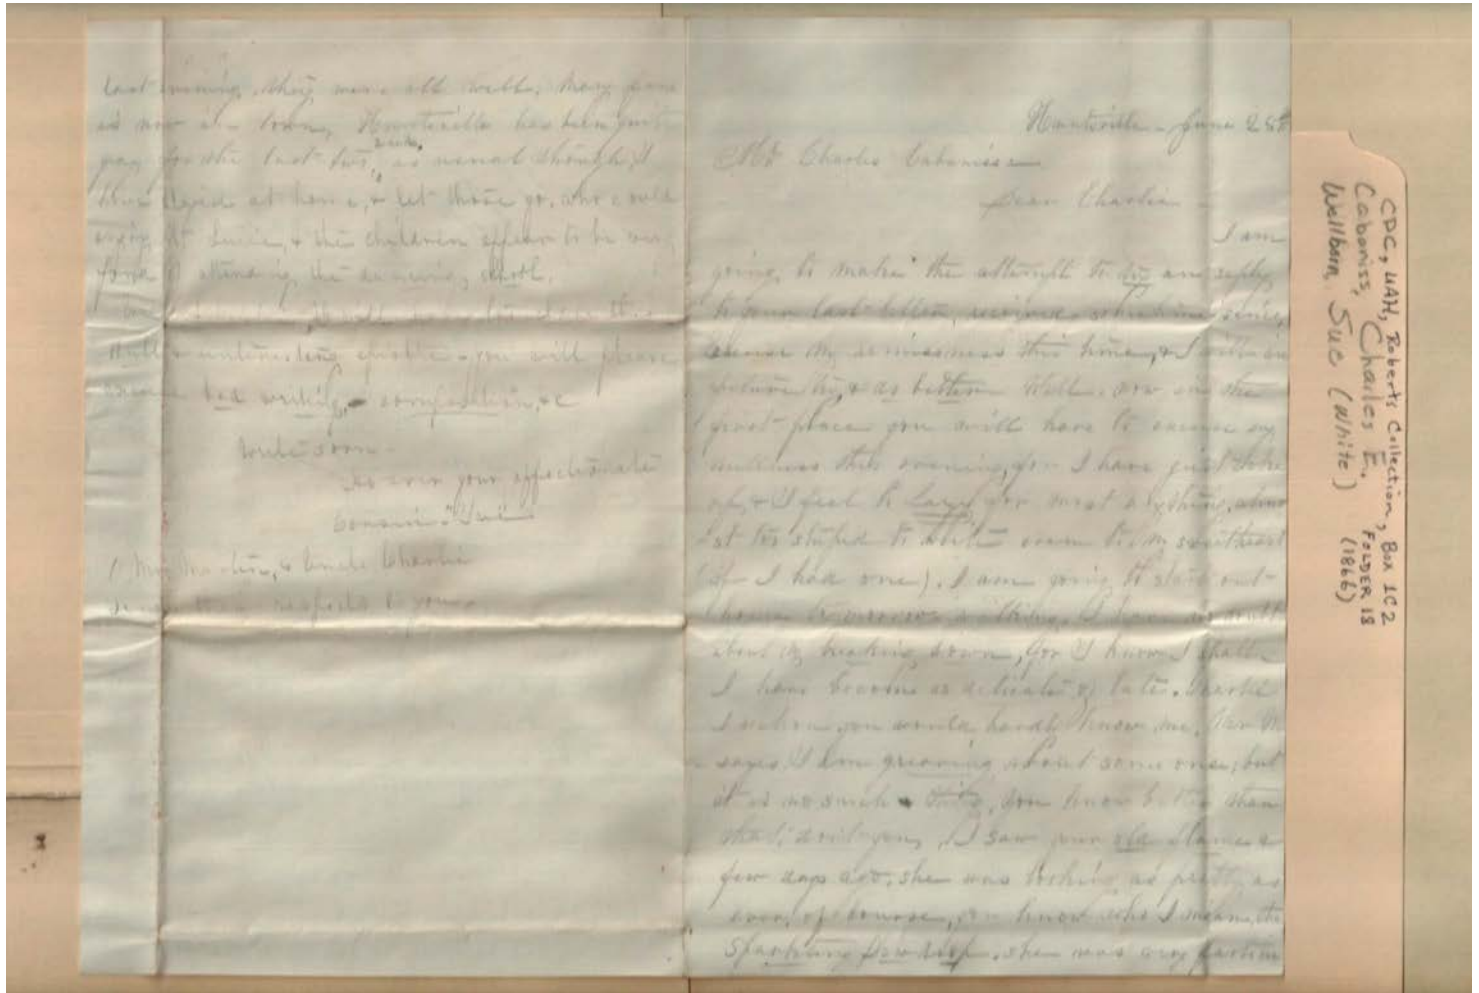 last evening, they were all well. Mary
is now in town, Huntsville has been quite
gay for the last two weeks, as usual though, I
have stayed at home, & let those go, who could
enjoy it Lucie, & the children appear to be very
fond of attending the dancing school.
will
dull & uninteresting epistle - you will please
excuse bad writing, - composition, &c
Write soon -
As ever your affectionate
Cousin "Sue"
Ma, & Uncle Charlie
respects to you -
Huntsville - June 28th
Mr Charles Cabaniss
Dear Charlie -
I am
going to make the attempt to reply
to your last letter, received sometime since,
excuse my remissness this time, & I will in
future try, & do better. Well, now in the
first place you will have to excuse my
this evening, for I have just woke
up, & I feel to lazy for most anything, almo
st too stupid to write even to my sweetheart
(if I had one). I am going to start out
home tomorrow I have no doubt
about my breaking down, for I know I shall
I have become so delicate of late. Charlie
I reckon you would hardly know me,
says I am grieving about some one, but
it is no such a thing, you know better than
that, don't you, I saw your old flame a
few days ago, she was looking as pretty as
ever, of course, you know who I mean, the
sparkling dew drop, she was very
CDC, UAH, Roberts Collection, Box 1C2
Cabaniss, Charles E. FOLDER 18
Wellborn, Sue (White) (1866)